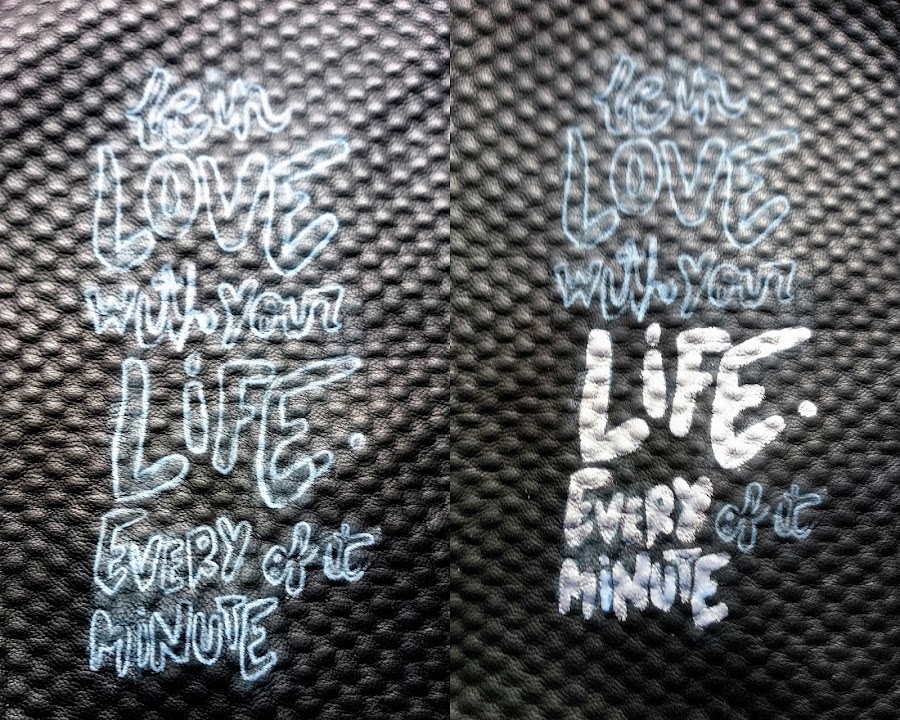 be in
LOVE
with your
LiFE.
EVERY of it
MiNUTE
be in
LOVE
with your
LiFE.
EVERY of it
MiNUTE